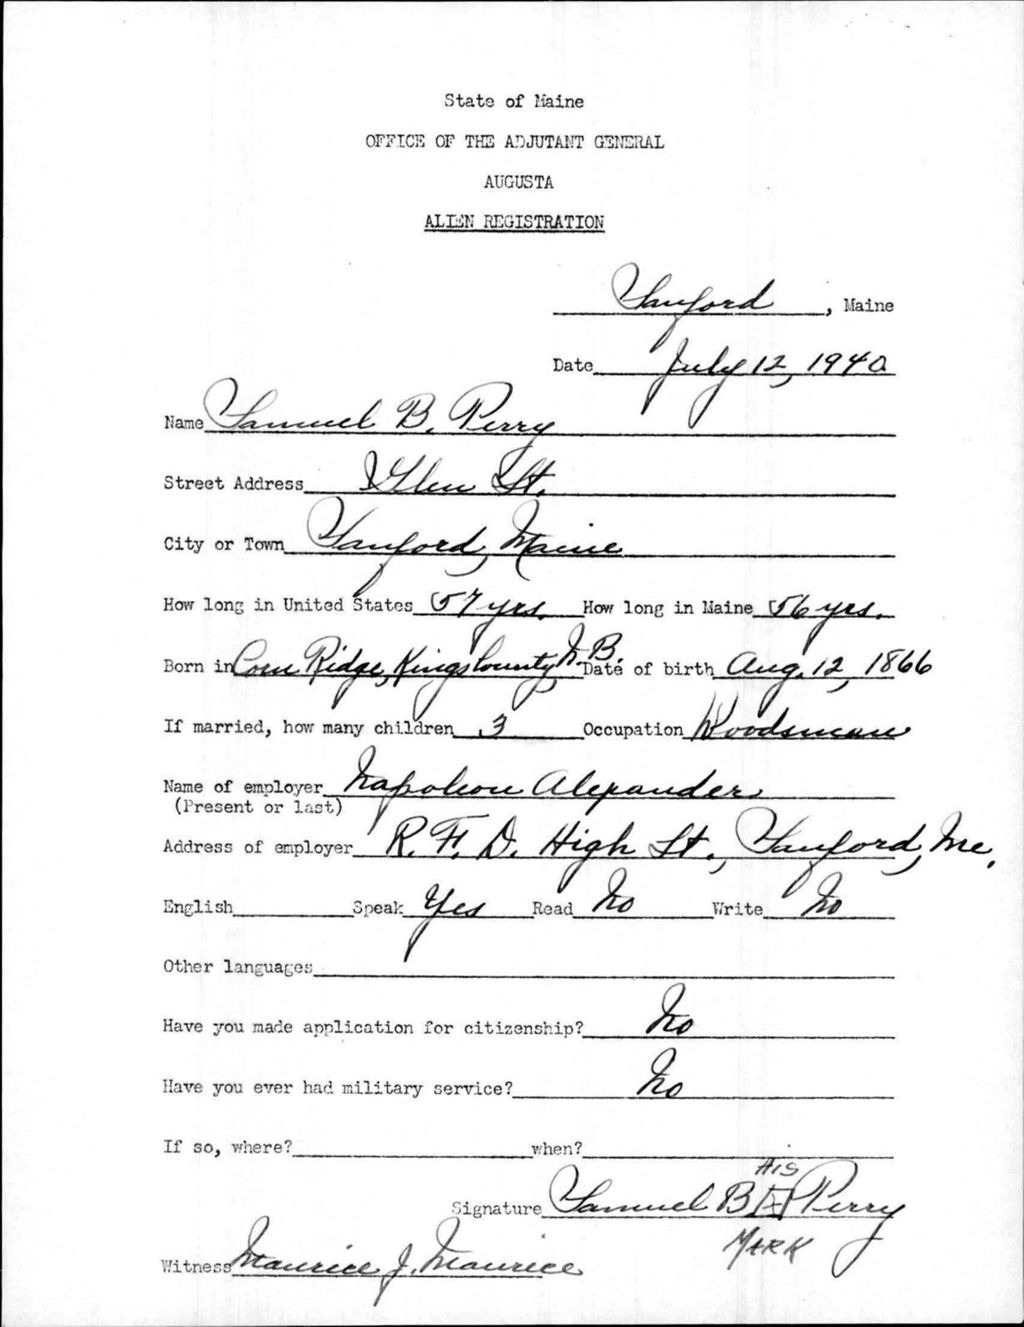 State of Maine
OFFICE OF THE ADJUTANT GENERAL
AUGUSTA
ALIEN REGISTRATION
Sanford, Maine
Date July 12, 1940
Name Samuel B. Perry
Street Address Glen St.
City or Town Sanford, Maine
How long in United States 57 yrs. How long in Maine 56 yrs.
Born in Corn Ridge, Kings County, N.B. Date of birth Aug. 12, 1866
If married, how many children 3 Occupation Woodsman
Name of employer Napoleon Alexander
(Present or last)
Address of employer R.F.D. High St., Sanford, Me.
English Speak Yes Read No Write No
Other languages
Have you made application for citizenship? No
Have you ever had military service? No
If so, where? when?
HIS
Signature Samuel B X Perry
MARK
Witness Maurice J. Maurice